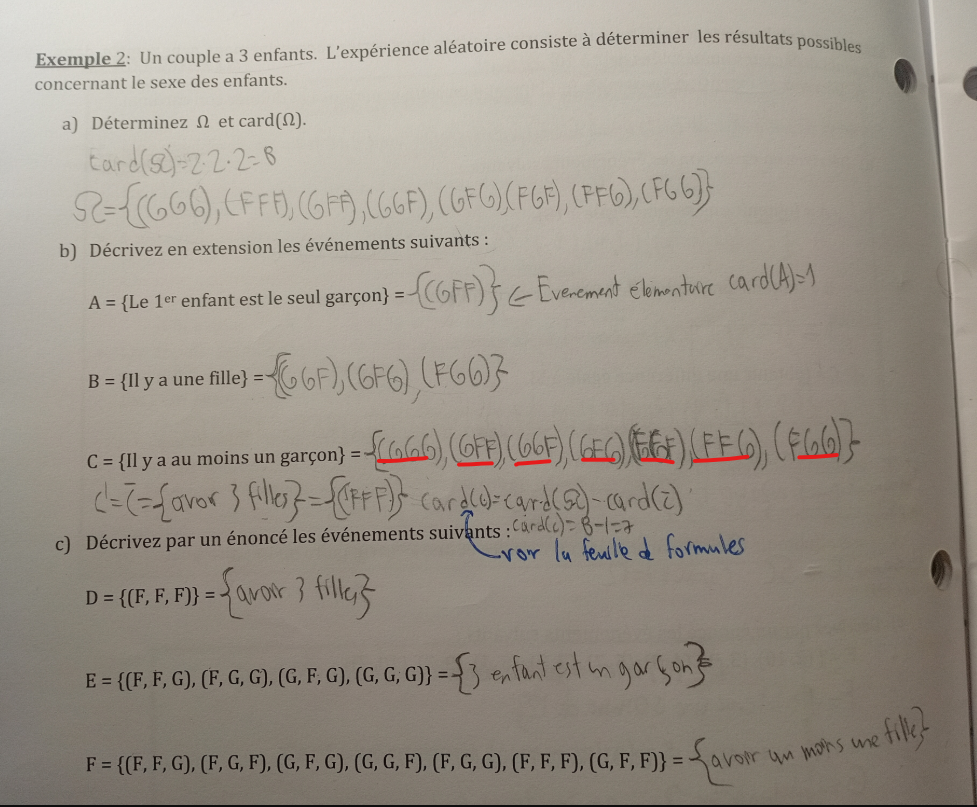 Exemple 2: Un couple a 3 enfants. L'expérience aléatoire consiste à déterminer les résultats possibles
concernant le sexe des enfants.
a) Déterminez Ω et card(Ω).
card(Ω)=2·2·2=8
Ω={(GGG),(FFF),(GFF),(GGF),(GFG)(FGF),(FFG),(FGG)}
b) Décrivez en extension les événements suivants :
A = {Le 1er enfant est le seul garçon} = {(GFF)} ← Evenement élementaire card(A)=1
B = {Il y a une fille} = {(GGF),(GFG),(FGG)}
C = {Il y a au moins un garçon} = {(GGG),(GFF),(GGF),(GFG)(FGF),(FFG),(FGG)}
C'=C̅={avor 3 filles}={(FFF)} card(c)=card(Ω)-card(c̅)
card(c)=8-1=7
c) Décrivez par un énoncé les événements suivants :
vor la feuille de formules
D = {(F, F, F)} = {avoir 3 filles}
E = {(F, F, G), (F, G, G), (G, F, G), (G, G, G)} = {3 enfant est un garçon}
F = {(F, F, G), (F, G, F), (G, F, G), (G, G, F), (F, G, G), (F, F, F), (G, F, F)} = {avoir un moins une fille}